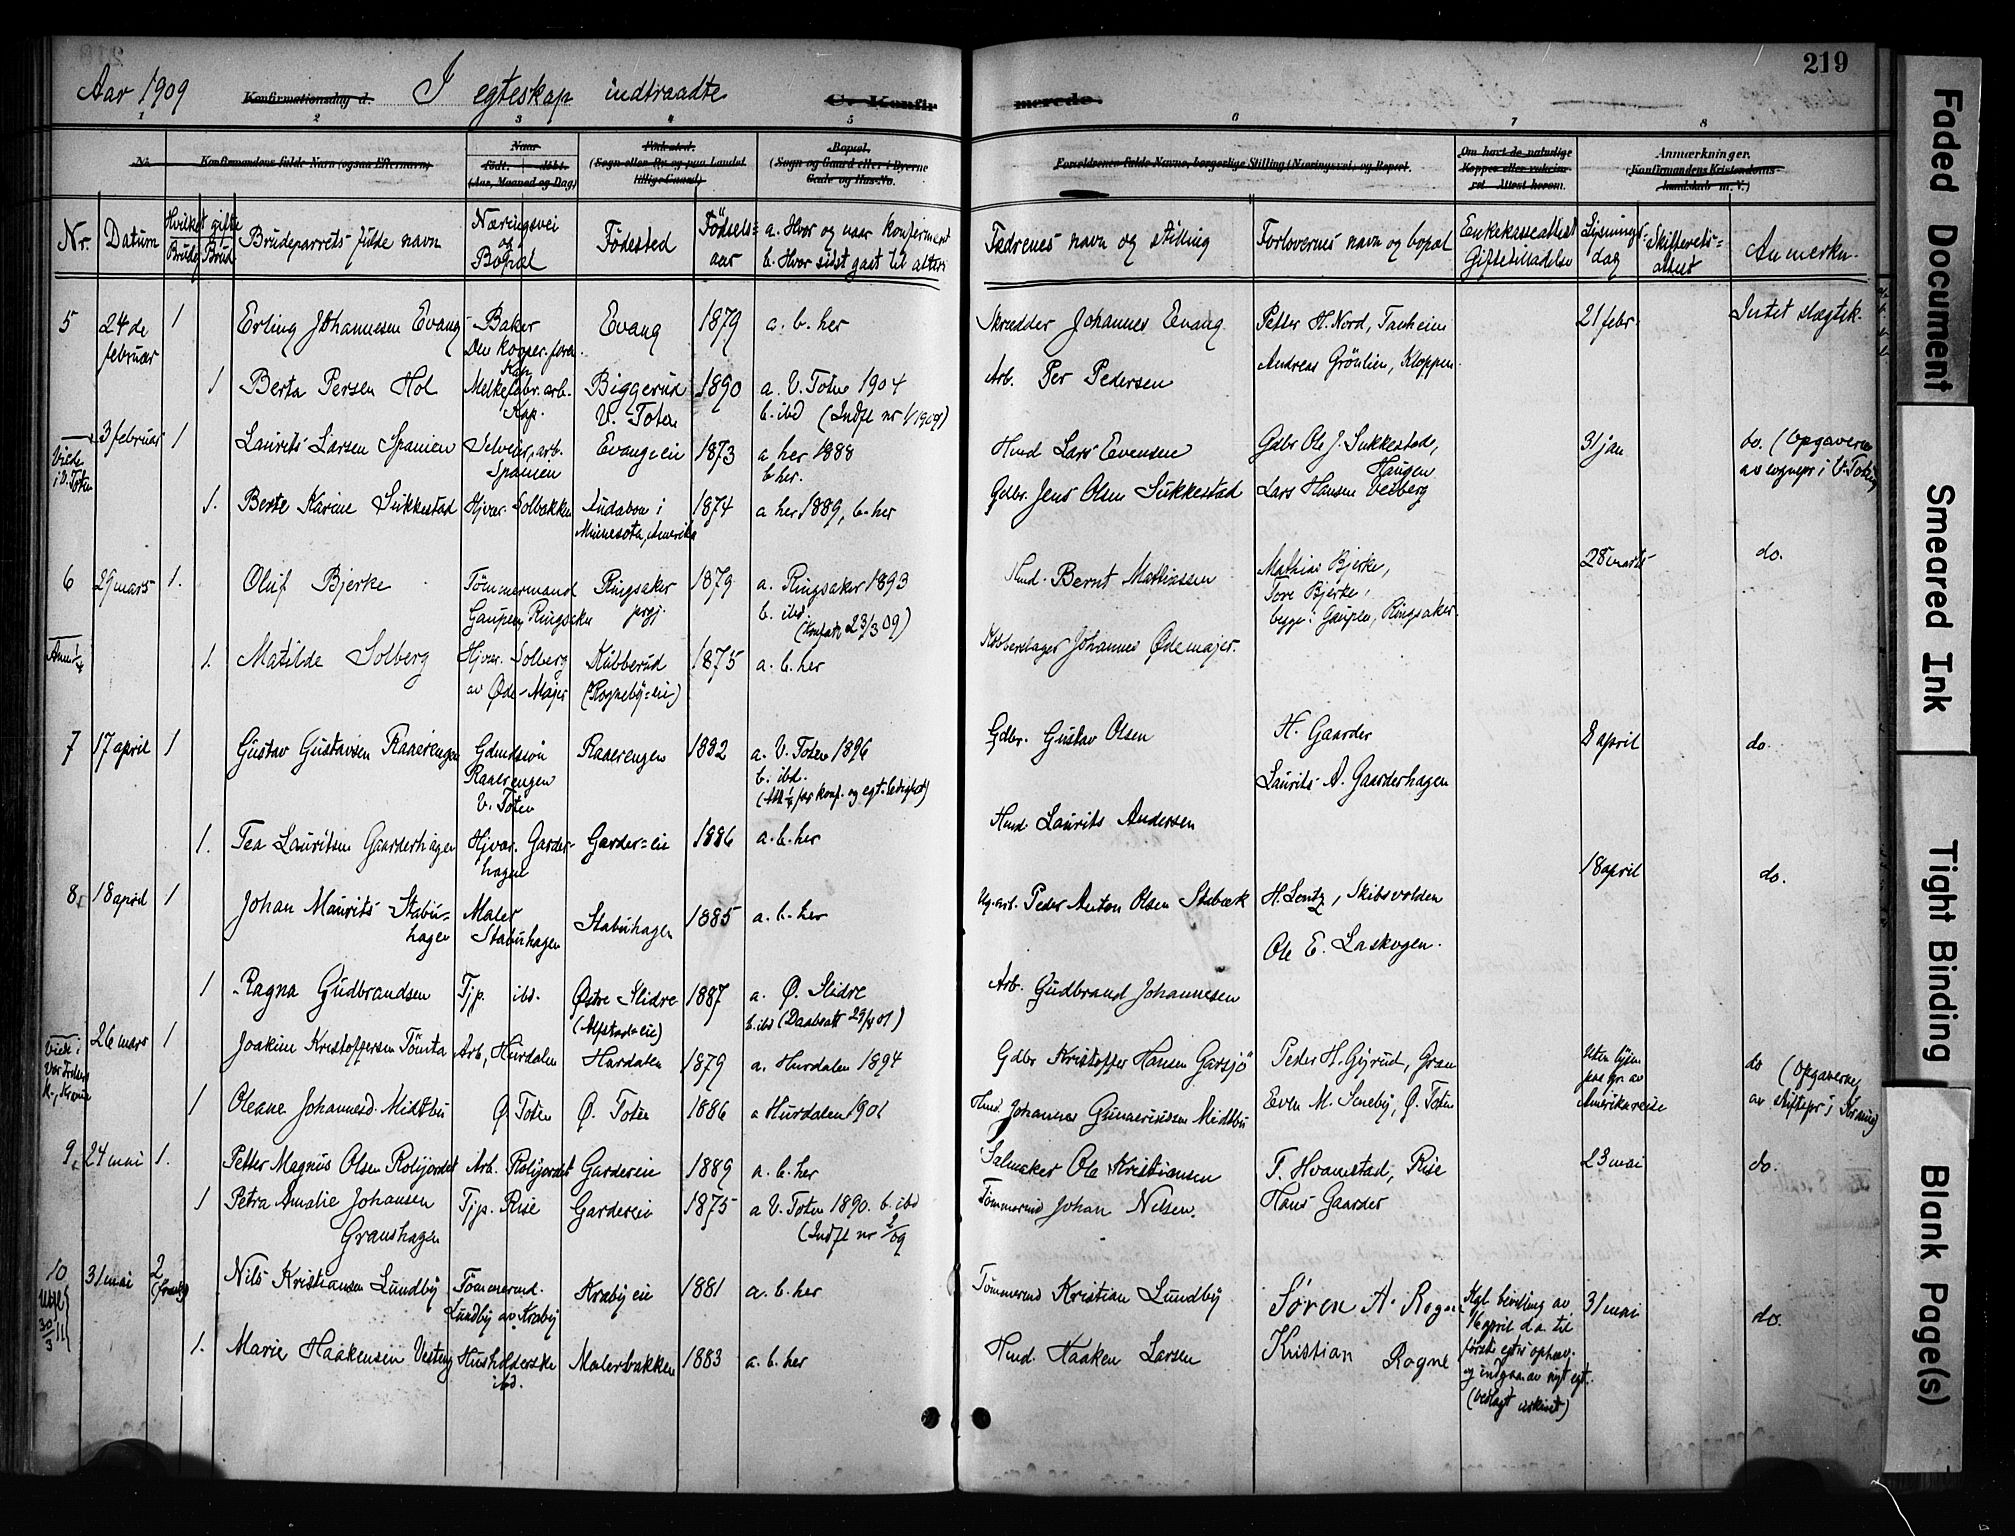 219
Aar 1909
Konfirmationsdag d.
I egteskap indtraadte
C. Konfirmerede.
1 2 3 4 5 6 7 8
No.
Konfirmandens fulde Navn (ogsaa Efternavn)
Naar
født. døbt.
(Aar, Maaned og Dag)
Fødested.
(Sogn eller By og paa Landet
tillige Gaard)
Bopæl.
(Sogn og Gaard eller i Byerne
Gade og Hus-No.
Forældrenes fulde Navne, borgerlige Stilling (Næringsvei) og Bopæl.
Om havt de naturlige
Kopper eller vakcineret. Attest herom.
Anmærkninger.
(Konfirmandens Kristendomskundskab m. V.)
Nr. Datum Hvilket gifte Brudg Brud Brudeparrets fulde navn Næringsvei og Bopæl Fødested Fødsels=aar a. Hvor og naar konfirmert b. Hvor sidst gaat til alters
Fædrenes navn og stilling Forlovernes navn og bopæl Enkekasseattest Giftetilladelse Lysningsdag Skifterets=attest Anmerkn.
5 24de februar 1 Erling Johannessen Evang Baker Evang 1879 a. b. her
Skrædder Johannes Evang Petter H. Nord, Tanheim 21 febr. Intet slægtsk.
Andreas Grönlien, Kloppen
1 Berta Persen Hol Melkefabr. arb. Kap. Biggerud V. Toten 1890 a. V. Toten 1904
b. ibd (Indfl nr 1/1909)
Arb. Per Pedersen
Viede i V. Toten 3 februar 1 Laurits Larsen Spanien Selveier, arb. Spanien Evang=eie 1873 a her 1888
b her.
Hmd Lars Evensen Gdbr Ole J. Sukkestad, Haugen 31 jan do. (Opgaverne
av sognepr i V. Toten)
1. Berte Karine Sukkestad Hjvær. Solbakken Audabon i Minnesota, Amerika 1874 a her 1889, b. her
Gdbr. Jens Olsen Sukkestad Lars Hansen Veiberg
6 29 mars 1. Oluf Bjerke Tömmermand Gaupen Ringsaker Ringsaker prgj. 1879 a. Ringsaker 1893
b. ibd.
Hmd. Bernt Mathiassen Mathias Bjerke, 28 marts do.
Tore Bjerke,
begge: Gaupen, Ringsaker
1. Matilde Solberg Hjvær. Solberg av Øde-Majer Kubberud (Rognebÿ=eie) 1875 a. b. her
Kobberslager Johannes Ødemajer.
7 17 april 1 Gustav Gustavsen Raaerengen Gdmdssön Raaerengen V. Toten Raaerengen 1882 a. V. Toten 1896
b. ibd.
Gdbr. Gustav Olsen H. Gaarder 8 april do.
Laurits A. Gaarderhagen
1. Tea Lauritsen Gaarderhagen Hjvær. Garderhagen Garder=eie 1886 a. b. her
Hmd. Laurits Andersen
8 18 april 1 Johan Maurits Stabuhagen Maler Stabuhagen Stabuhagen 1885 a. b. her
Peder Anton Olsen Stabæk H. Lentz, Skibsvolden 18 april do.
Ole E. Laskogen.
1 Ragna Gudbrandsen Tjp. ibd. Østre Slidre (Alfstad=eie) 1887 a. Ø. Slidre
Arb. Gudbrand Johannesen
26 mars 1 Joakim Kristoffersen Tömta Arb, Hurdalen Hurdalen 1879 a. Hurdalen 1894
Gdbr Kristoffer Hansen Garsjö Peder H. Gejrud, Gran do (Opgaverne
av stiftspr i
1 Oleane Johannesd. Midtbu Ø Toten Ø. Toten 1886 a Hurdalen 1901
Hmd. Johannes Guneriussen Midtbu Even M. Seneby, Ø. Toten Amerikareise
9 24 mai 1. Petter Magnus Olsen Roligordet Arb. Roligordet Gardereie 1889 a. b. her
Salmaker Ole Kristiansen T. Hvamstad, Rise 23 mai do.
1 Petra Amalie Johansen Granshagen Tjp. Rise Gardereie 1875 a V. Toten 1890. b. ibd
(Indfl nr 2/09
Tömmermd Johan Nilsen. Hans Gaarder
10 31 mai 2 Nils Kristiansen Lundby Tömmermd. Lundby av Kraby Kraby eie 1881 a. b. her
Tömmermd Kristian Lundby Søren A. Rogne Kgl. bevilling av 16 april d.a. til 31 mai do.
1. Marie Haakensen Vesteng Husholderske ibd. Malerbakken 1883 a. b. her
Hmd. Haaken Larsen Kristian Rogne
Faded Document
Smeared Ink
Tight Binding
Blank Page(s)